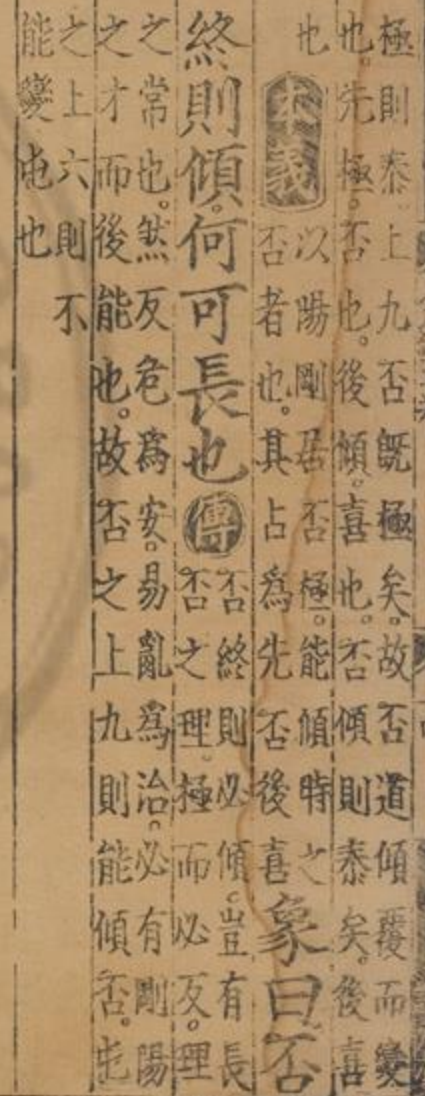 極則泰。上九否既極矣。故否道傾覆而變
也。先極。否也。後傾。喜也。否傾則泰矣。後喜
也
本義
以陽剛居否極。能傾時之
否者也。其占爲先否後喜
象曰。否
終則傾。何可長也
傳
否終則必傾。豈有長
否之理。極而必反。理
之常也。然反危爲安。易亂爲治。必有剛陽
之才而後能也。故否之上九則能傾否。屯
之上六則不
能變屯也